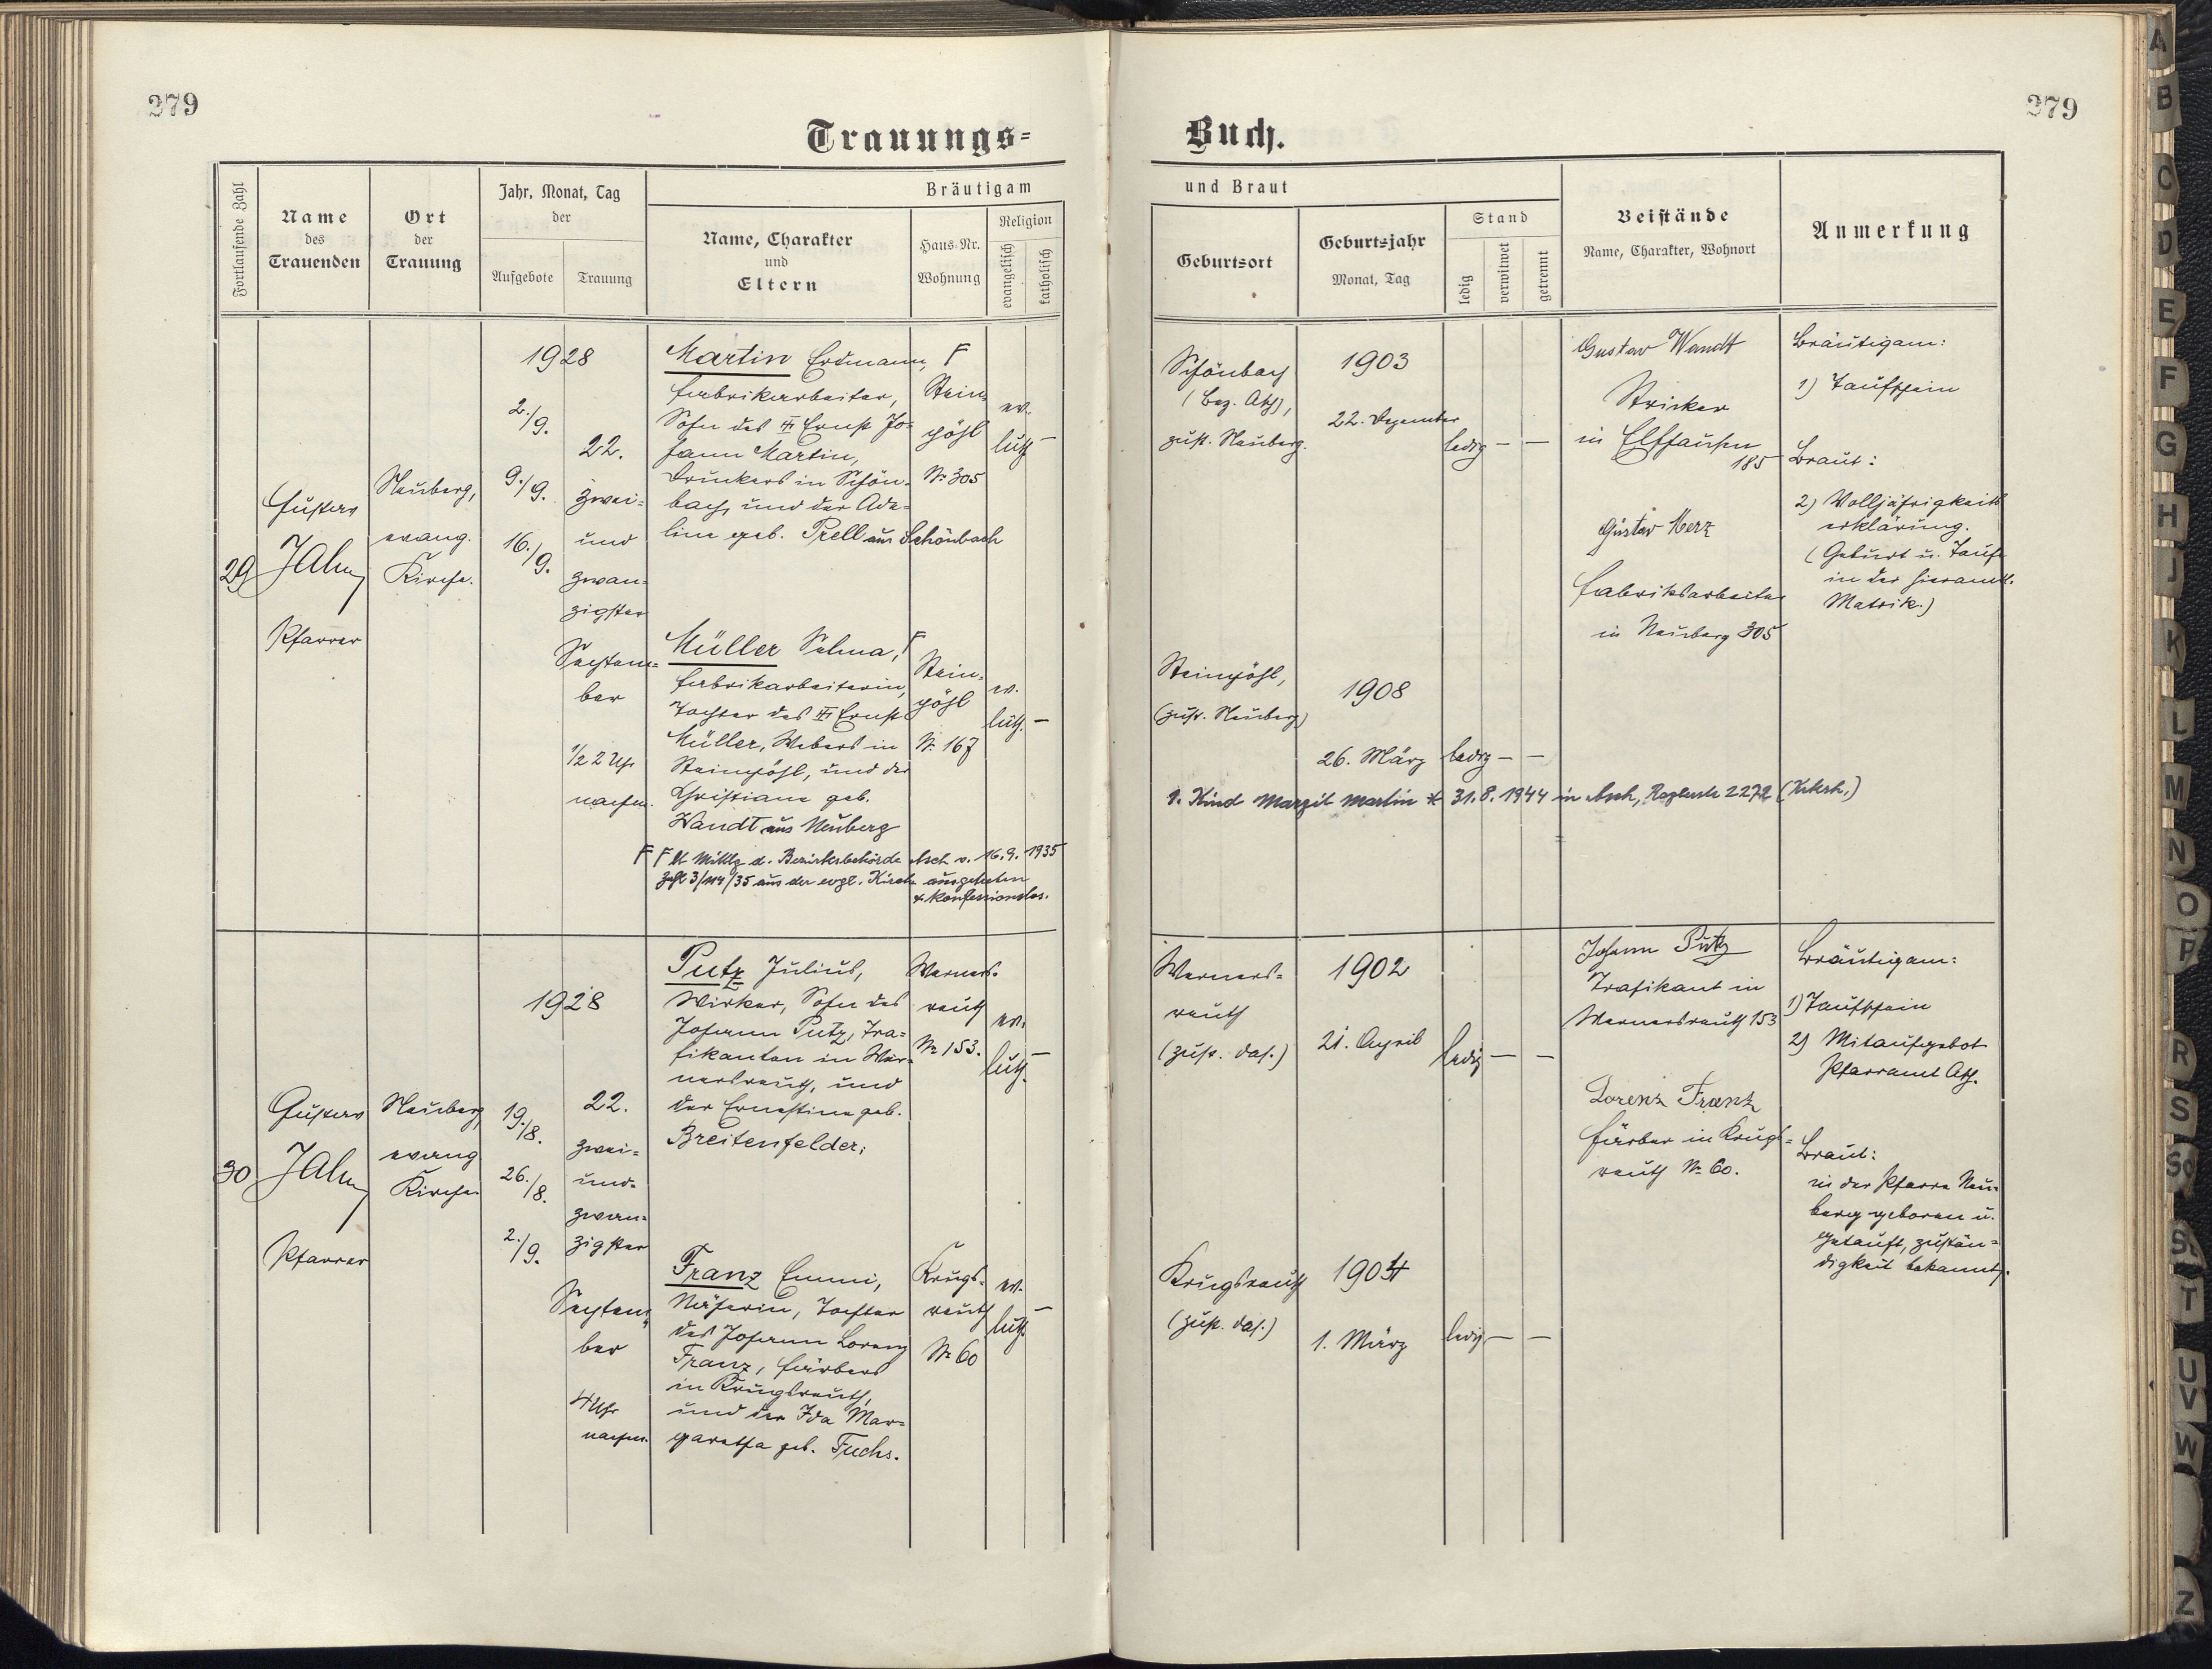 279
279
Trauungs-
Buch.
Fortlaufende Zahl
Name
des
Trauenden
Ort
der
Trauung
Jahr, Monat, Tag
der
Aufgebote
Trauung
Bräutigam
Name, Charakter
und
Eltern
Haus-Nr.
Wohnung
Religion
evangelisch
katholisch
und Braut
Geburtsort
Geburtsjahr
Monat, Tag
Stand
ledig
verwitwet
getrennt
Beistände
Name, Charakter, Wohnort
Anmerkung
29
Gustav
Jahn
Pfarrer
Neuberg,
evang.
Kirche.
1928
2./9.
9./9.
16./9.
22.
zwei-
und
zwan-
zigster
Septem-
ber
1/2 2 Uhr
nachm.
Martin Erdmann, F
Fabrikarbeiter,
Sohn des Ernst Jo-
hann Martin,
Druckers in Schön-
bach, und der Ade-
line geb. Prell aus Schönbach
Stein-
pöhl
No 305
ev.
luth.
–
Müller Selma, F
Fabrikarbeiterin,
Tochter des Ernst
Müller, Webers in
Steinpöhl, und der
Christiane geb.
Wandt aus Neuberg
Stein-
pöhl
No 167
ev.
luth. –
F F lt Mittlg d. Bezirksbehörde Asch v. 16.9.1935
Zahl 3/114/35 aus der evgl. Kirche ausgetreten
u. konfessionslos.
Schönbach
(Bez. Asch),
zust. Neuberg.
1903
22. Dezember
ledig – –
Gustav Wandt
Stricker
in Elfhausen
185
Gustav Merz
Fabriksarbeiter
in Neuberg 305
Bräutigam:
1) Taufschein
Braut:
2) Volljährigkeits
erklärung.
(Geburt u. Taufe
in der hieramtl.
Matrik.)
Steinpöhl,
(zust. Neuberg)
1908
26. März
ledig – –
1. Kind Margit Martin * 31.8.1944 in Asch, 2272
30
Gustav
Jahn
Pfarrer
Neuberg,
evang
Kirche.
1928
19./8.
26./8.
2./9.
22.
zwei-
und-
zwan-
zigster
Septem-
ber
4 Uhr
nachm.
Putz Julius,
Wirker, Sohn des
Johann Putz, Tra-
fikanten in Wer-
nersreuth, und
der Ernestine geb.
Breitenfelder.
Werners-
reuth
No 153.
ev.
luth.
–
Franz Emmi,
Näherin, Tochter
des Johann Lorenz
Franz, Färbers
in Krugsreuth,
und der Ida Mar-
garetha geb. Fuchs.
Krugs-
reuth
No 60
ev.
luth.
–
Werners-
reuth
(zust. das.)
1902
21. April
ledig – –
Johann Putz
Trafikant in
Wernersreuth 153
Lorenz Franz
Färber in Krugs-
reuth No 60.
Bräutigam:
1) Taufschein
2) Mitaufgebot
Pfarramt Asch.
Braut:
in der Pfarre Neu-
berg geboren u.
getauft, zustän-
digkeit bekannt.
Krugsreuth
(zust. das.)
1904
1. März
ledig – –
A
B
C
D
E
F
G
H
J
K
L
M
N
O
P
R
S
Sch
St
T
U
V
W
Z